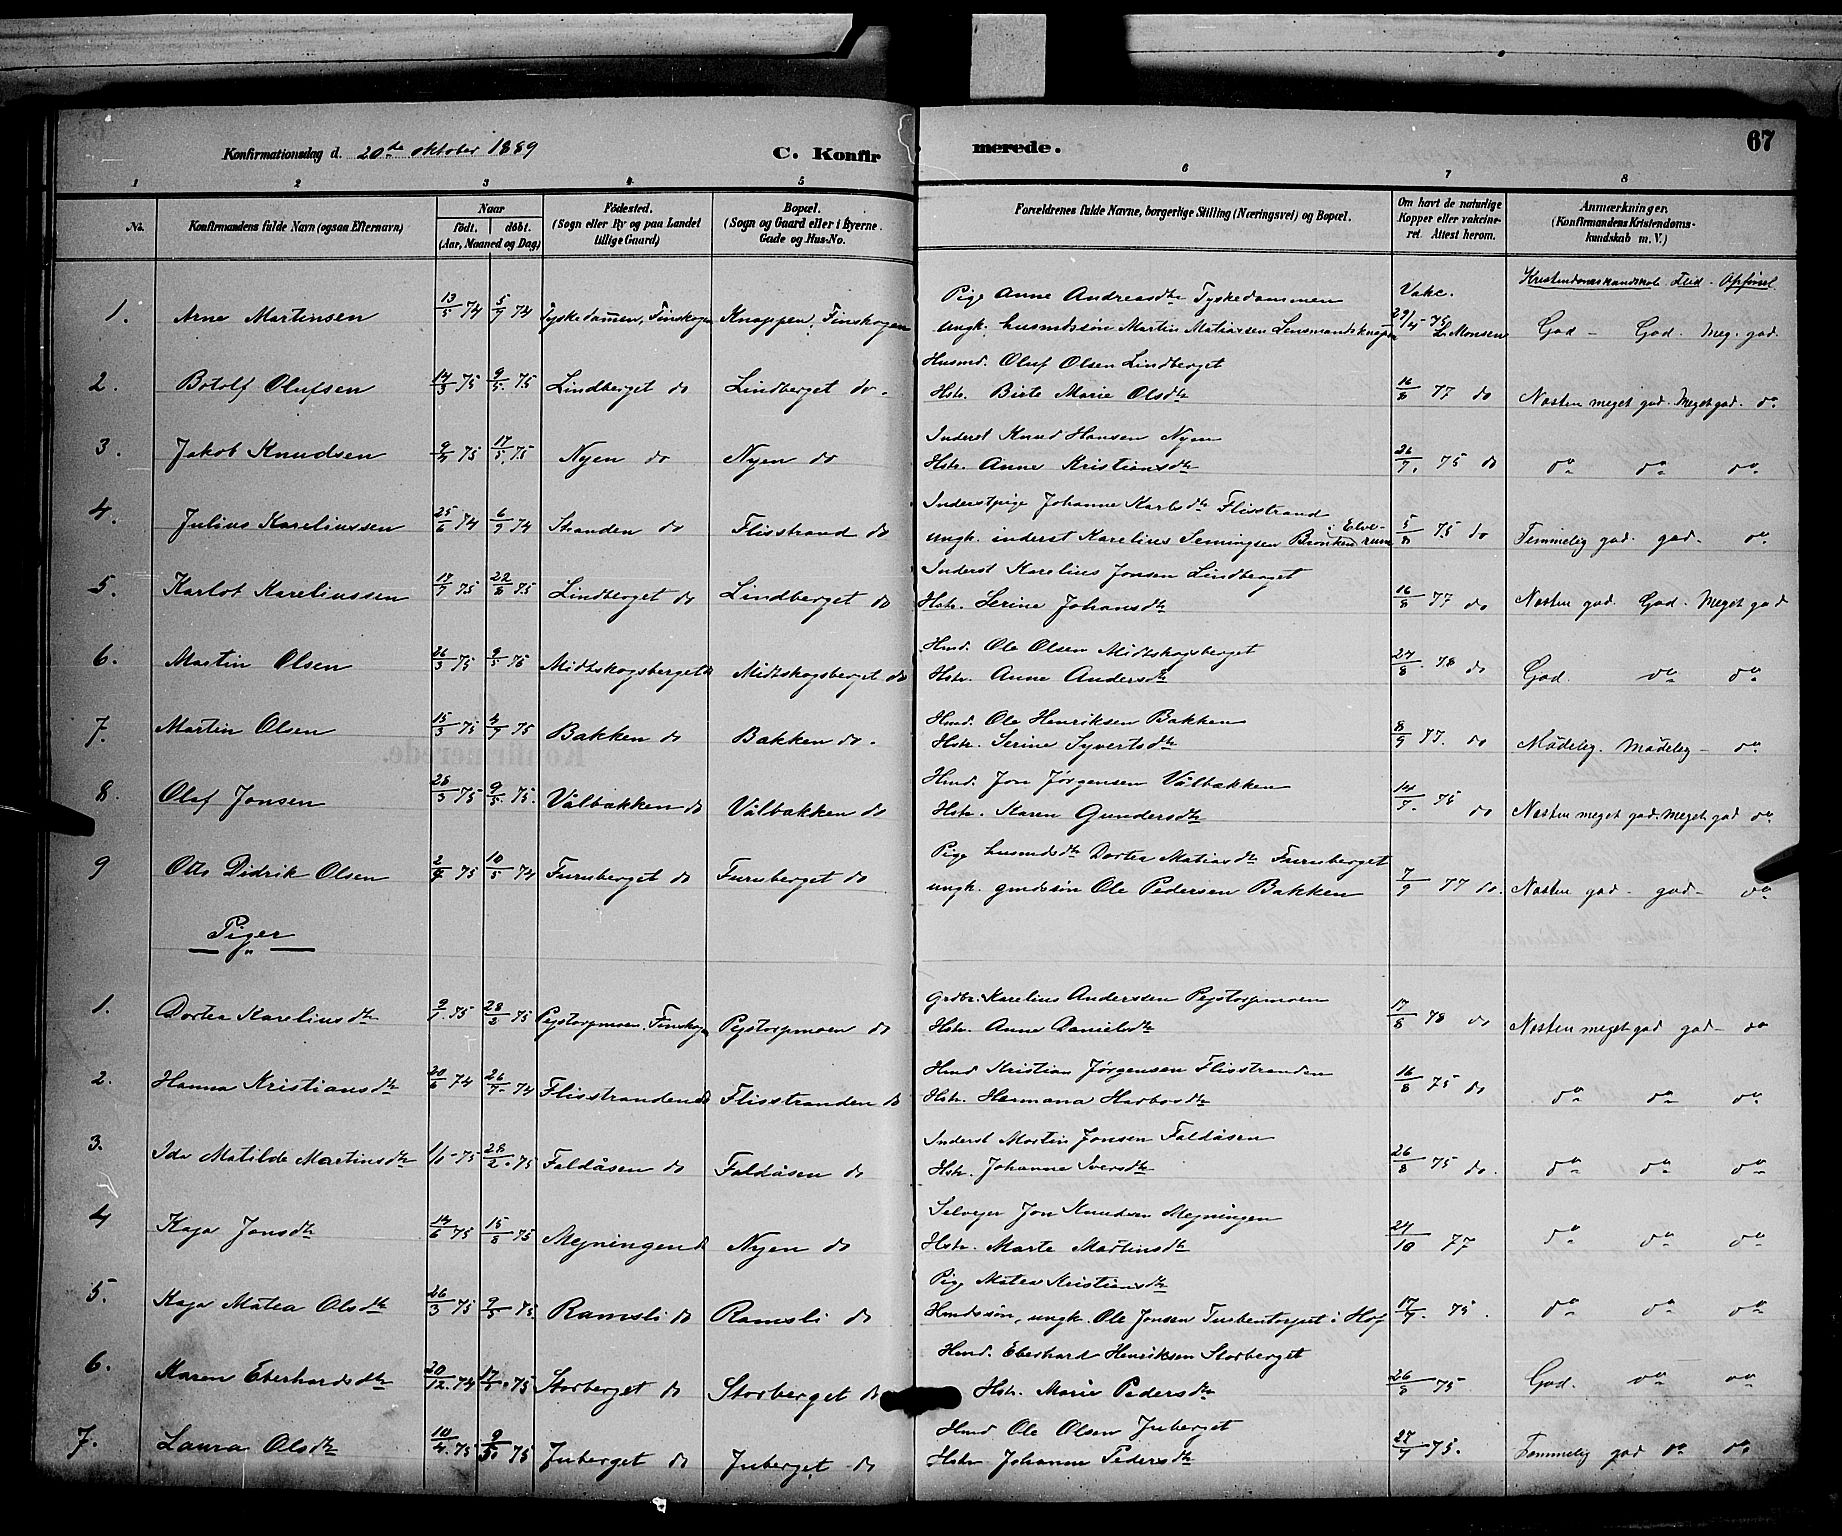 Konfirmationsdag d. 20de oktober 1889 C. Konfirmerede. 67
1 2 3 4 5 6 7 8
No. Konfirmandens fulde Navn (ogsaa Efternavn) Naar födt. döbt. (Aar, Maaned og Dag) Födested. (Sogn eller By og paa Landet tillige Gaard) Bopæl. (Sogn og Gaard eller i Byerne Gade og Hus-No. Forældrenes fulde Navne, borgerlige Stilling (Næringsvei) og Bopæl. Om havt de naturlige Kopper eller vakcineret. Attest herom. Anmærkninger. (Konfirmandens Kristendomskundskab m. V.)
Kristendomskundskab Flid - Opførsel
Pige Anne Andreasdtr Tyskedammen Vakc.
1. Arne Martinsen 13/5 74 5/7 74 Tyskedammen, Finskogen Knappen, Finskogen ungk. husmdssøn Martin Matiassen Lensmandsknappen 29/4 - 75 L. Monsen God - God. Meg. god.
Husmd. Oluf Olsen Lindberget
2. Botolf Olufsen 14/3 75 9/5 75 Lindberget do Lindberget do. Hstr. Birte Marie Olsdtr 16/8 77 do Næsten meget god. Meget god. do
Inderst Knud Hansen Nyen
3. Jakob Knudsen 9/4 75 17/5 75 Nyen do Nyen do Hstr. Anne Kristiansdtr 26/7. 75 do do do do
Inderstpige Johanne Karlsdtr Flisstrand
4. Julius Kareliussen 25/6 74 6/9 74 Standen do Flisstrand do ungk. inderst Karelius Semingsen Bronken i Elverum 5/8 75 do Temmelig god. god. do
Inderst Karelius Jonsen Lindberget
5. Karlot Kareliussen 17/7 75 22/8 75 Lindberget do Lindberget do Hstr. Serine Johansdtr 16/8 77 do Næsten god. God. Meget god
Hmd. Ole Olsen Midtskogsberget
6. Martin Olsen 26/3 75 9/5 75 Midtskogsberget do Midtskogsberget do Hstr. Anne Andersdtr 27/8. 78 do God. do do
Hmd. Ole Henriksen Bakken
7. Martin Olsen 15/3 75 4/7 75 Bakken do Bakken do. Hstr. Serine Syvertsdtr 8/9 77. do Mådelig. Mådelig - do
Hmd. Jon Jørgensen Vålbakken
8. Olaf Jonsen 28/3 75 9/5 75. Vålbakken do Vålbakken do Hstr. Karen Gundersdtr 14/7. 75 do Næsten meget god. Meget god do
Pige husmdsdtr Dortea Matiasdtr Furuberget
9 Otto Didrik Olsen 2/4 75 10/5 74 Furuberget do Furuberget do ungk. gmdssøn Ole Pedersen Bakken 7/9 77 do. Næsten god - god - do
Piger
Grdbr. Karelius Anderssen Peistorpmoen
1. Dortea Kareliusdtr 9/1. 75 28/2 75 Peistorpmoen, Finskogen Peistorpmoen do Hstr. Anne Danielsdtr 17/8 78 do Næsten meget god god - do
Hmd Kristian Jørgensen Flisstranden
2. Hanna Kristiansdtr 20/6 74 26/7. 74 Flisstranden do Flisstranden do Hstr. Hermana Harbosdtr 16/8 75 do do do do
Inderst Martin Jonsen Faldåsen
3. Ida Matilde Martinsdtr 1/1 - 75 28/2. 75 Faldåsen do Faldåsen do Hstr. Johanne Iversdtr 26/8 75 do. do do do
Selveier Jon Knudsen Mejningen
4 Kaja Jonsdtr 14/6 75 15/8 75 Mejningen do Nyen do Hstr. Marte Martinsdtr 24/10 77 do do do
Pige Matea Kristiansdtr
5. Kaja Matea Olsdtr 26/3 75 9/5 75. Ramsli do Ramsli do Hmdssøn, ungk. Ole Jonsen Turbentorpet i Hof 17/7. 75. do do do
Hmd. Eberhard Henriksen Storberget
6. Karen Eberhardsdtr 20/12. 74 17/5. 75 Storberget do Storberget do Hstr. Marie Pedersdtr 26/8 75 God. do do
Hmd Ole Olsen Juberget
7. Laura Olsdtr 10/4. 75 75 Juberget do Juberget do Hstr Johanne Pedersdtr 27/7 75. Temmelig god do do